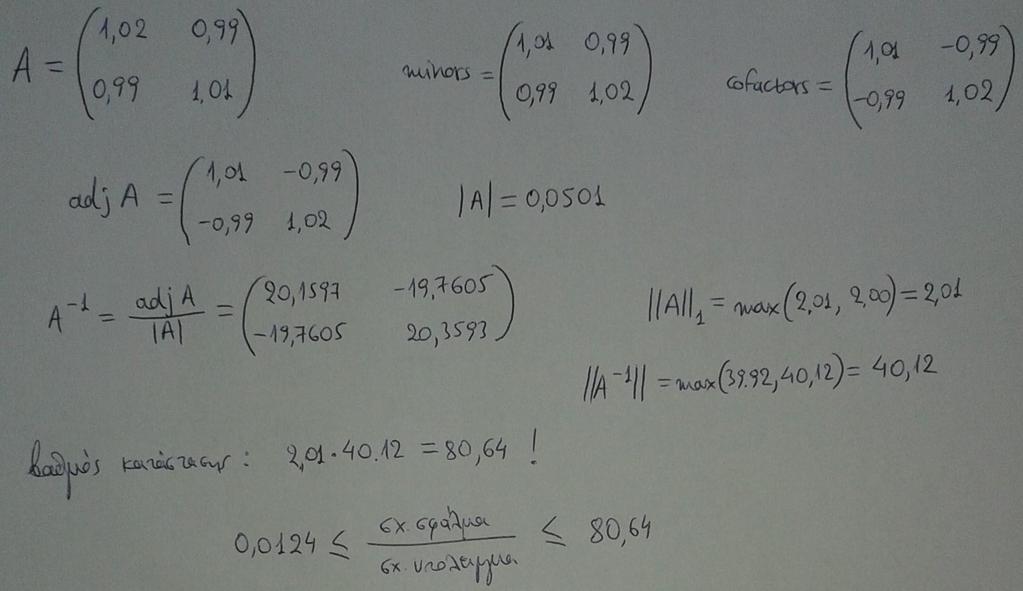 A = (1,02 0,99 minors = (1,01 0,99 cofactors = (1,01 -0,99
0,99 1,01) 0,99 1,02) -0,99 1,02)
adj A = (1,01 -0,99 |A| = 0,0501
-0,99 1,02)
A⁻¹ = adj A / |A| = (20,1597 -19,7605
-19,7605 20,3593)
||A||₁ = max(2,01, 2,00) = 2,01
||A⁻¹|| = max(39.92, 40,12) = 40,12
βαθμός κατάστασης: 2,01·40.12 = 80,64 !
0,0124 ≤ σχ. σφάλμα / σχ. υπόλειμμα ≤ 80,64